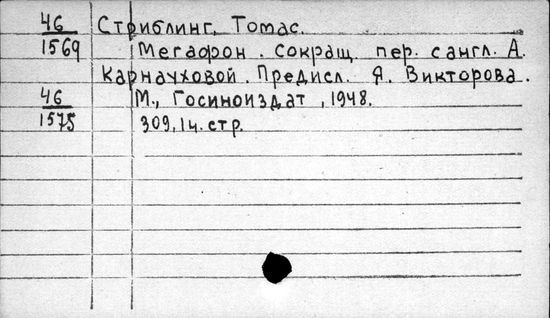 46 Стриблинг, Томас.
1569 Мегафон. Сокращ. пер. с англ. А.
Карнауховой. Предисл. Я. Викторова.
46 М., Госиноиздат, 1948.
1575 309, 1 ч. стр.